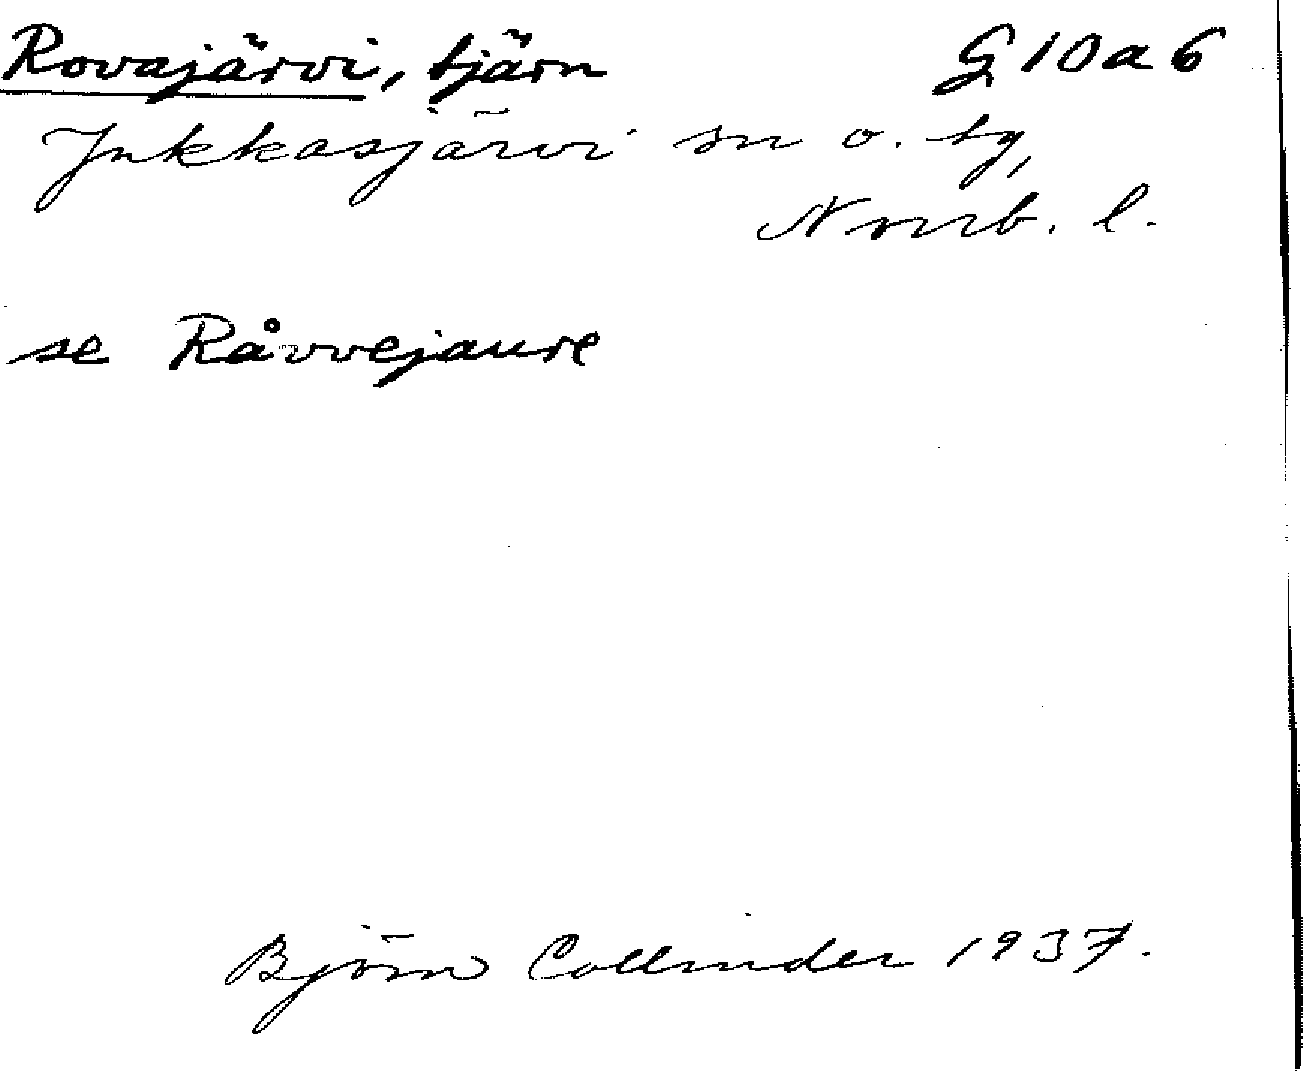 Rovajärvi, tjärn G 10 a 6
Jukkasjärvi sn o. tg,
Norrb. l.
se Råvvejaure
Björn Collinder 1937.